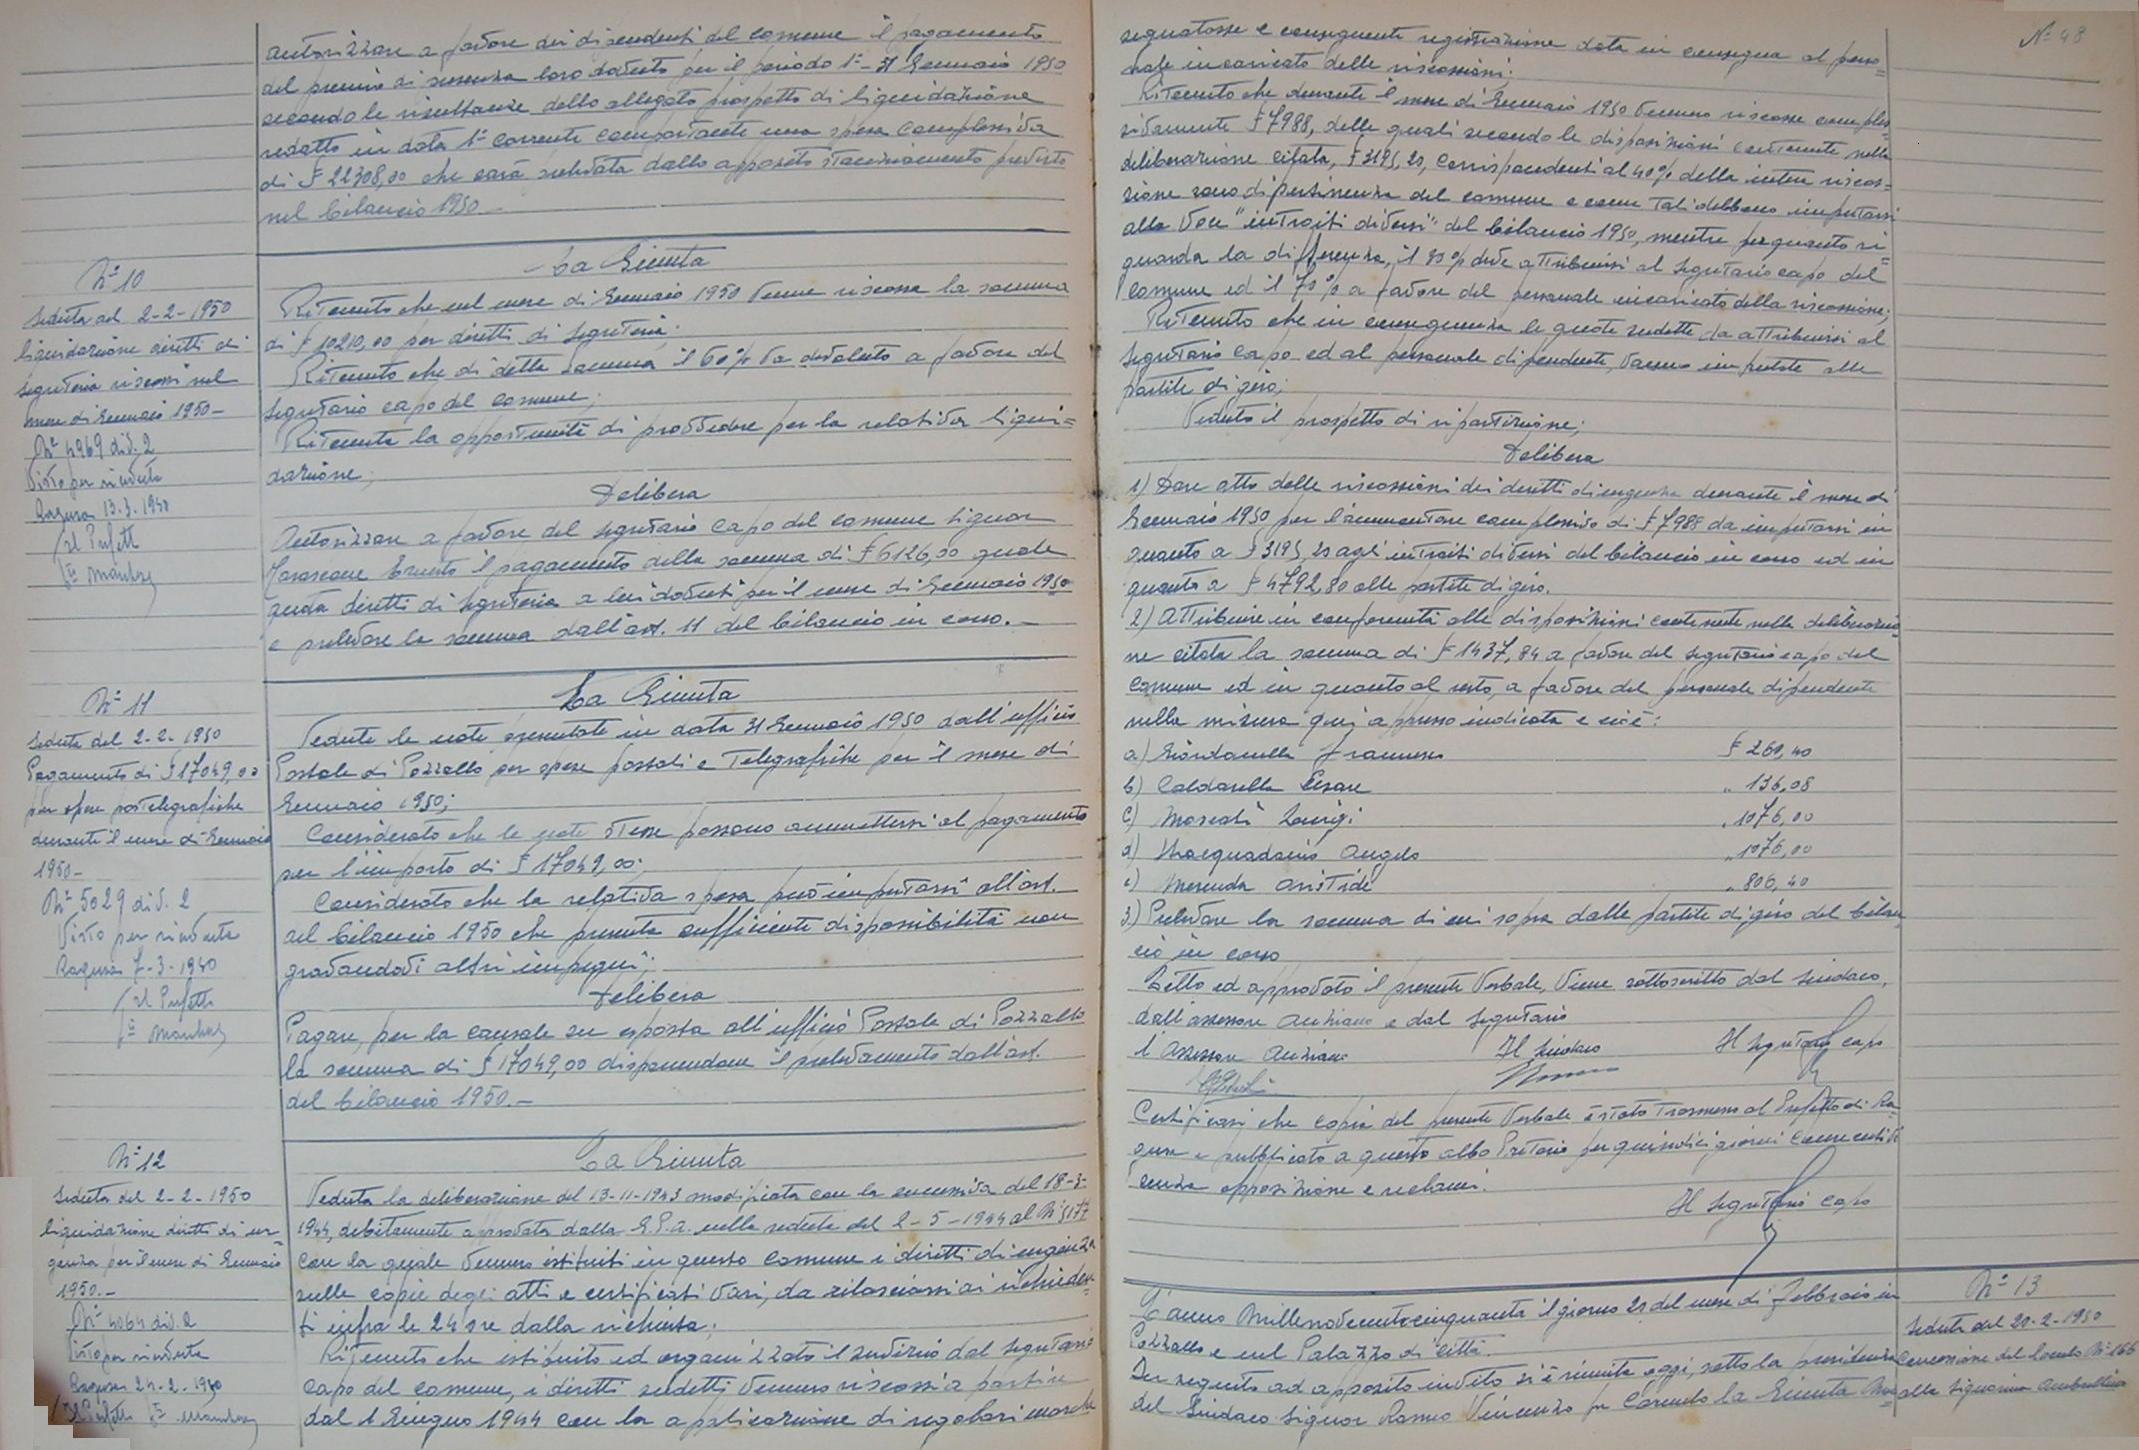 autorizzare a favore dei dipendenti del comune il pagamento
del premio di presenza loro dovuto per il periodo 1°-31 Gennaio 1950
secondo le risultanze dello allegato prospetto di liquidazione
redatto in data 1° corrente comportante una spesa complessiva
di £ 22308,00 che sarà prelevata dallo apposito stanziamento previsto
nel bilancio 1950
N° 10
Seduta del 2-2-1950
liquidazione diritti di
segreteria riscossi nel
mese di Gennaio 1950-
N° 4969 div. 2
Visto per ricevuta
Ragusa 13.3.1950
Il Prefetto
La Giunta
Ritenuto che nel mese di Gennaio 1950 venne riscossa la somma
di £ 10210,00 per diritti di segreteria;
Ritenuto che di detta somma il 60% va devoluto a favore del
segretario capo del comune;
Ritenuta la opportunità di provvedere per la relativa liqui=
dazione;
Delibera
Autorizzare a favore del segretario capo del comune signor
Ernesto il pagamento della somma di £ 6126,00 quale
quota diritti di segreteria a lui dovuti per il mese di Gennaio 1950
e prelevare la somma dall'art. 11 del bilancio in corso.-
N° 11
Seduta del 2-2-1950
Pagamento di £ 17049,00
per spese postelegrafiche
durante il mese di Gennaio
1950-
N° 5029 div. 2
Visto per ricevuta
Ragusa 7-3-1950
Il Prefetto
La Giunta
Vedute le note presentate in data 31 Gennaio 1950 dall'ufficio
Postale di Pozzallo per spese postali e telegrafiche per il mese di
Gennaio 1950;
Considerato che le note stesse possono ammettersi al pagamento
per l'importo di £ 17049,00;
Considerato che la relativa spesa può imputarsi all'art.
del bilancio 1950 che presenta sufficiente disponibilità non
gravandovi altri impegni;
Delibera
Pagare, per la causale su esposta all'ufficio Postale di Pozzallo
la somma di £ 17049,00 disponendone il prelevamento dall'art.
del bilancio 1950.-
N° 12
Seduta del 2-2-1950
liquidazione diritti di ur=
genza per il mese di Gennaio
1950.-
N° 4064 div. 2
Visto per ricevuta
Ragusa 24-2-1950
Il Prefetto
La Giunta
Veduta la deliberazione del 13-11-1943 modificata con la successiva del 18-3-
1944, debitamente approvata dalla G.P.A. nella seduta del 2-5-1944 al N° 5177
con la quale vennero istituiti in questo comune i diritti di urgenza
sulle copie degli atti e certificati vari, da rilasciarsi ai richieden=
ti infra le 24 ore dalla richiesta;
Ritenuto che istituito ed organizzato il servizio dal segretario
capo del comune, i diritti suddetti vennero riscossi a partire
dal 1 Giugno 1944 con la applicazione di regolari marche
N° 48
segnatasse e conseguente registrazione data in consegna al perso=
nale incaricato delle riscossioni;
Ritenuto che durante il mese di Gennaio 1950 vennero riscosse comples=
sivamente £ 7988, delle quali secondo le disposizioni contenute nella
deliberazione citata, £ 3195,20, corrispondenti al 40% della intera riscos=
sione sono di pertinenza del comune e come tali debbono imputarsi
alla voce "introiti diversi" del bilancio 1950, mentre per quanto ri=
guarda la differenza, il 30% deve attribuirsi al segretario capo del
comune ed il 70% a favore del personale incaricato della riscossione;
Ritenuto che in conseguenza le quote suddette da attribuirsi al
segretario capo ed al personale dipendente vanno imputate alle
partite di giro;
Veduto il prospetto di ripartizione;
Delibera
1) Dare atto delle riscossioni dei diritti di urgenza durante il mese di
Gennaio 1950 per l'ammontare complessivo di £ 7988 da imputarsi in
quanto a £ 3195,20 agli introiti diversi del bilancio in corso ed in
quanto a £ 4792,80 alle partite di giro.
2) Attribuire in conformità alle disposizioni contenute nella deliberazio=
ne citata la somma di £ 1437,84 a favore del segretario capo del
comune ed in quanto al resto, a favore del personale dipendente
nella misura qui appresso indicata e cioè:
a) Giordanella Francesco £ 260,40
b) Caldarella Cesare " 136,08
c) Moscati Luigi " 1076,00
d) Angelo " 1076,00
e) Merenda Aristide " 806,40
3) Prelevare la somma di cui sopra dalle partite di giro del bilan=
cio in corso
Letto ed approvato il presente verbale, viene sottoscritto dal Sindaco,
dall'assessore anziano e dal segretario
L'Assessore Anziano Il Sindaco Il Segretario capo
Certificasi che copia del presente verbale è stata trasmessa al Prefetto di Ra=
gusa e pubblicata a questo albo Pretorio per quindici giorni consecutivi
senza opposizione e reclami.
Il Segretario capo
L'anno millenovecentocinquanta il giorno 20 del mese di Febbraio in
Pozzallo e nel Palazzo di città.
In seguito ad apposito invito si è riunita oggi, sotto la presidenza
del Sindaco Signor Vincenzo fu Carmelo la Giunta Mu=
N° 13
Seduta del 20-2-1950
Concessione del loculo N° 166
alla Signorina